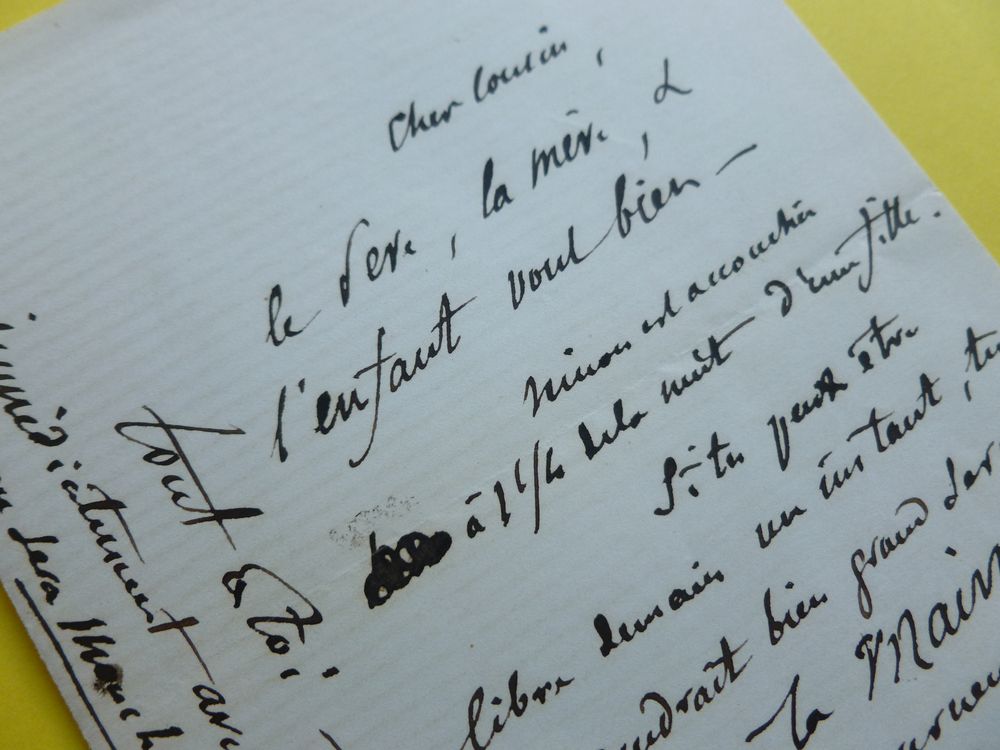 cher cousin,
le Père, la mère, &
l'enfant vont bien —
Ninon est accouchée
à 1 1/2 de la nuit d'une fille.
Si tu peux être
libre demain un instant, tu
drait bien grand ser
la Mair
tout à toi
immédiatement
sera